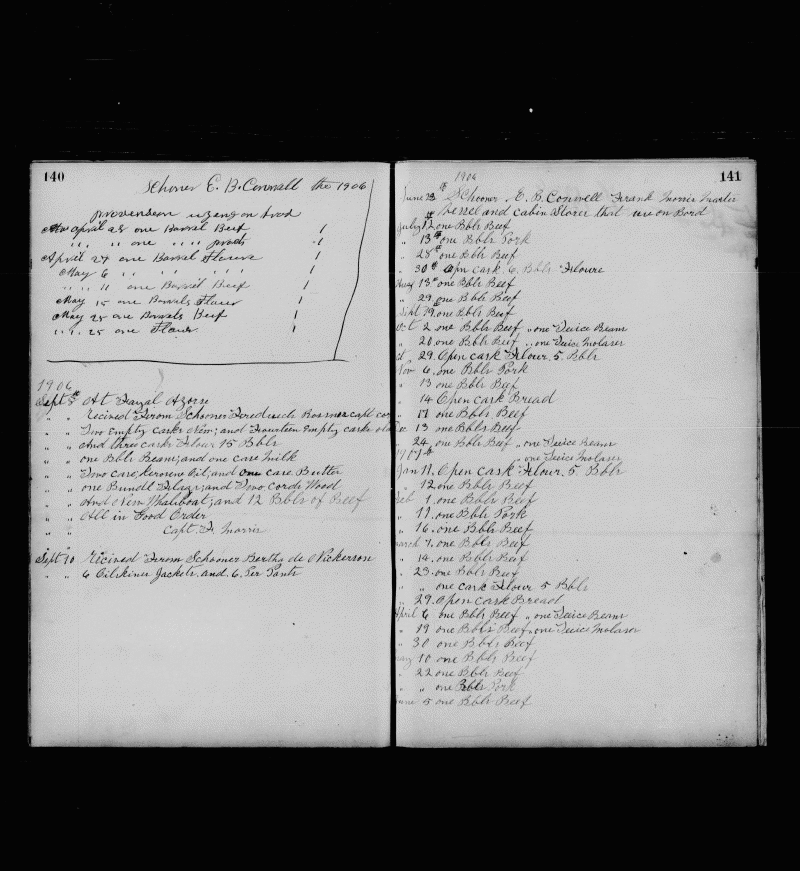 140
Schoner E. B. Conwall the 1906
april 28 one Barrel Beef 1
,, ,, ,, one ,, ,, 1
April 29 one Barrel Flower 1
May 6 ,, ,, ,, ,, ,, 1
,, ,, 11 one Barrel Beef 1
May 15 one Barrels Flower 1
May 25 one Barrels Beef 1
,, ,, 25 one Flower 1
1906
Sept 5th At Fayal Azorse
,, ,, recived Ferom Schooner capt
,, ,, Two Empty casks New; and Fourteen Empty casks
,, ,, And three casks Flour 15 Bblr
,, ,, one Bblr Beam; and one case milk
,, ,, Two case, kerosene Oil; and one case Butter
,, ,, one Bundl Flags; and Two. Cords Wood
,, ,, And New Whaleboat; and 12 Bblr of Beef
,, ,, All in Good Order
,, ,, Capt. F. Morris
Sept 10 Recived Ferom Schooner Bertha de Nickerson
,, ,, 6 Oilskiner Jackets. and. 6. Per Pants
141
1906
June Schooner, E. B. Conwell Frank Morris Master
Vessel and Cabin Stores that use on Bord
July 12 one Bblr Beef
,, 13th one Bblr Pork
,, 28th one Bblr Beef
,, 30th Opn cask 6. Bblr Floure
13th one Bblr Beef
,, 29. one Bblr Beef
Sept 19. one Bblr Beef
Oct 2 one Bblr Beef ,, one Teice Beam
,, 20. one Bblr Beef ,, one Teice Molaser
29. Open cask Flour. 5. Bblr
Nov 6. one Bblr Pork
,, 13 one Bblr Beef
,, 14 Open cask Bread
,, 17 one Bblr Beef
13 one Bblr Beef
,, 24 one Bblr Beef ,, one Teice Beam
,, one Teice Molaser
Jan 11. Open cask Flour. 5 Bblr
,, 12 one Bblr Beef
Feb 1. one Bblr Beef
,, 11. one Bblr Pork
,, 16. one Bblr Beef
march 7. one Bblr Beef
,, 14. one Bblr Beef
,, 23. one Bblr Beef
,, ,, one cask Flour 5 Bblr
,, 29. Open cask Bread
April 6 one Bblr Beef ,, one Teice Beam
,, 19 one Bblr Beef ,, one Teice Molaser
,, 30 one Bblr Beef
may 10 one Bblr Beef
,, 22 one Bblr Beef
,, ,, one Bblr Pork
June 5 one Bblr Beef